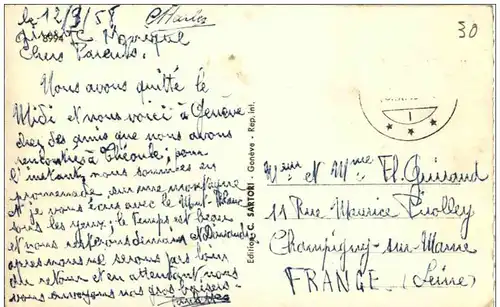 le 12/9/58
Chers Parents,
Nous avons quitté le
Midi et nous voici à Genève
chez des amis que nous avons
rencontrés à Théoule; pour
l'instant, nous sommes en
promenade sur une montagne
et je vous écris avec le Mont-Blanc
sous les yeux; le temps est beau
et nous resterons dimanche
après nous ne serons pas loin
du retour et en attendant nous
vous envoyons nos gros baisers.
Edition C. SARTORI - Genève - Rep. int.
30
Mr et Mme
11 Rue Maurice
Champigny-sur-Marne
FRANCE (Seine)